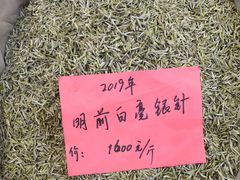 2019年
明前白毫银针
价: 1600元/斤